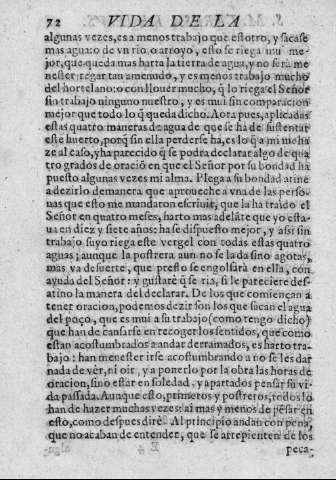 72 VIDA DE LA
algunas vezes, es a menos trabajo que estotro, y sacase
mas agua: o de vn rio, o arroyo, esto se riega muy me-
jor, que queda mas harta la tierra de agua, y no será me
nester regar tan amenudo, y es menos trabajo mucho
del hortelano: o con llouer mucho, q̃ lo riega el Señor
sin trabajo ninguno nuestro, y es mui sin comparacion
mejor que todo lo q̃ queda dicho. Aora pues, aplicadas
estas quatro maneras de agua de que se ha de sustentar
este huerto, porq̃ sin ella perderse ha, es lo q̃ a mi me ha
ze al caso, y ha parecido q̃ se podra declarar algo de qua
tro grados de oració en que el Señor por su bondad ha
puesto algunas vezes mi alma. Plega a su bondad atine
a dezirlo de manera que aproueche a vna de las perso-
nas que esto me mandaron escriuir, que la ha traido el
Señor en quatro meses, harto mas adeláte que yo esta-
ua en diez y siete años: ha se dispuesto mejor, y assi sin
trabajo suyo riega este vergel con todas estas quatro
aguas; aunque la postrera aun no se la da sino a gotas,
mas va de suerte, que presto se engolfará en ella, con
ayuda del Señor: y gustaré q̃ se ria, si le pareciere desa-
tino la manera del declarar. De los que comiençan a
tener oracion, podemos dezir son los que sacan el agua
del poço, que es mui a su trabajo (como tengo dicho)
que han de cansarse en recoger los sentidos, que como
estan acostumbrados a andar derramados, es harto tra-
bajo: han menester irse acostumbrando a no se les dar
nada de vér, ni oir, y a ponerlo por la obra las horas de
oracion, sino estar en soledad, y apartados pensar su vi-
da passada. Aunque esto, primeros y postreros, todos lo
han de hazer muchas vezes: ai mas y menos de pésar en
esto, como despues diré. Al principio andan con pena,
que no acaban de entender, que se arrepienten de los
peca-